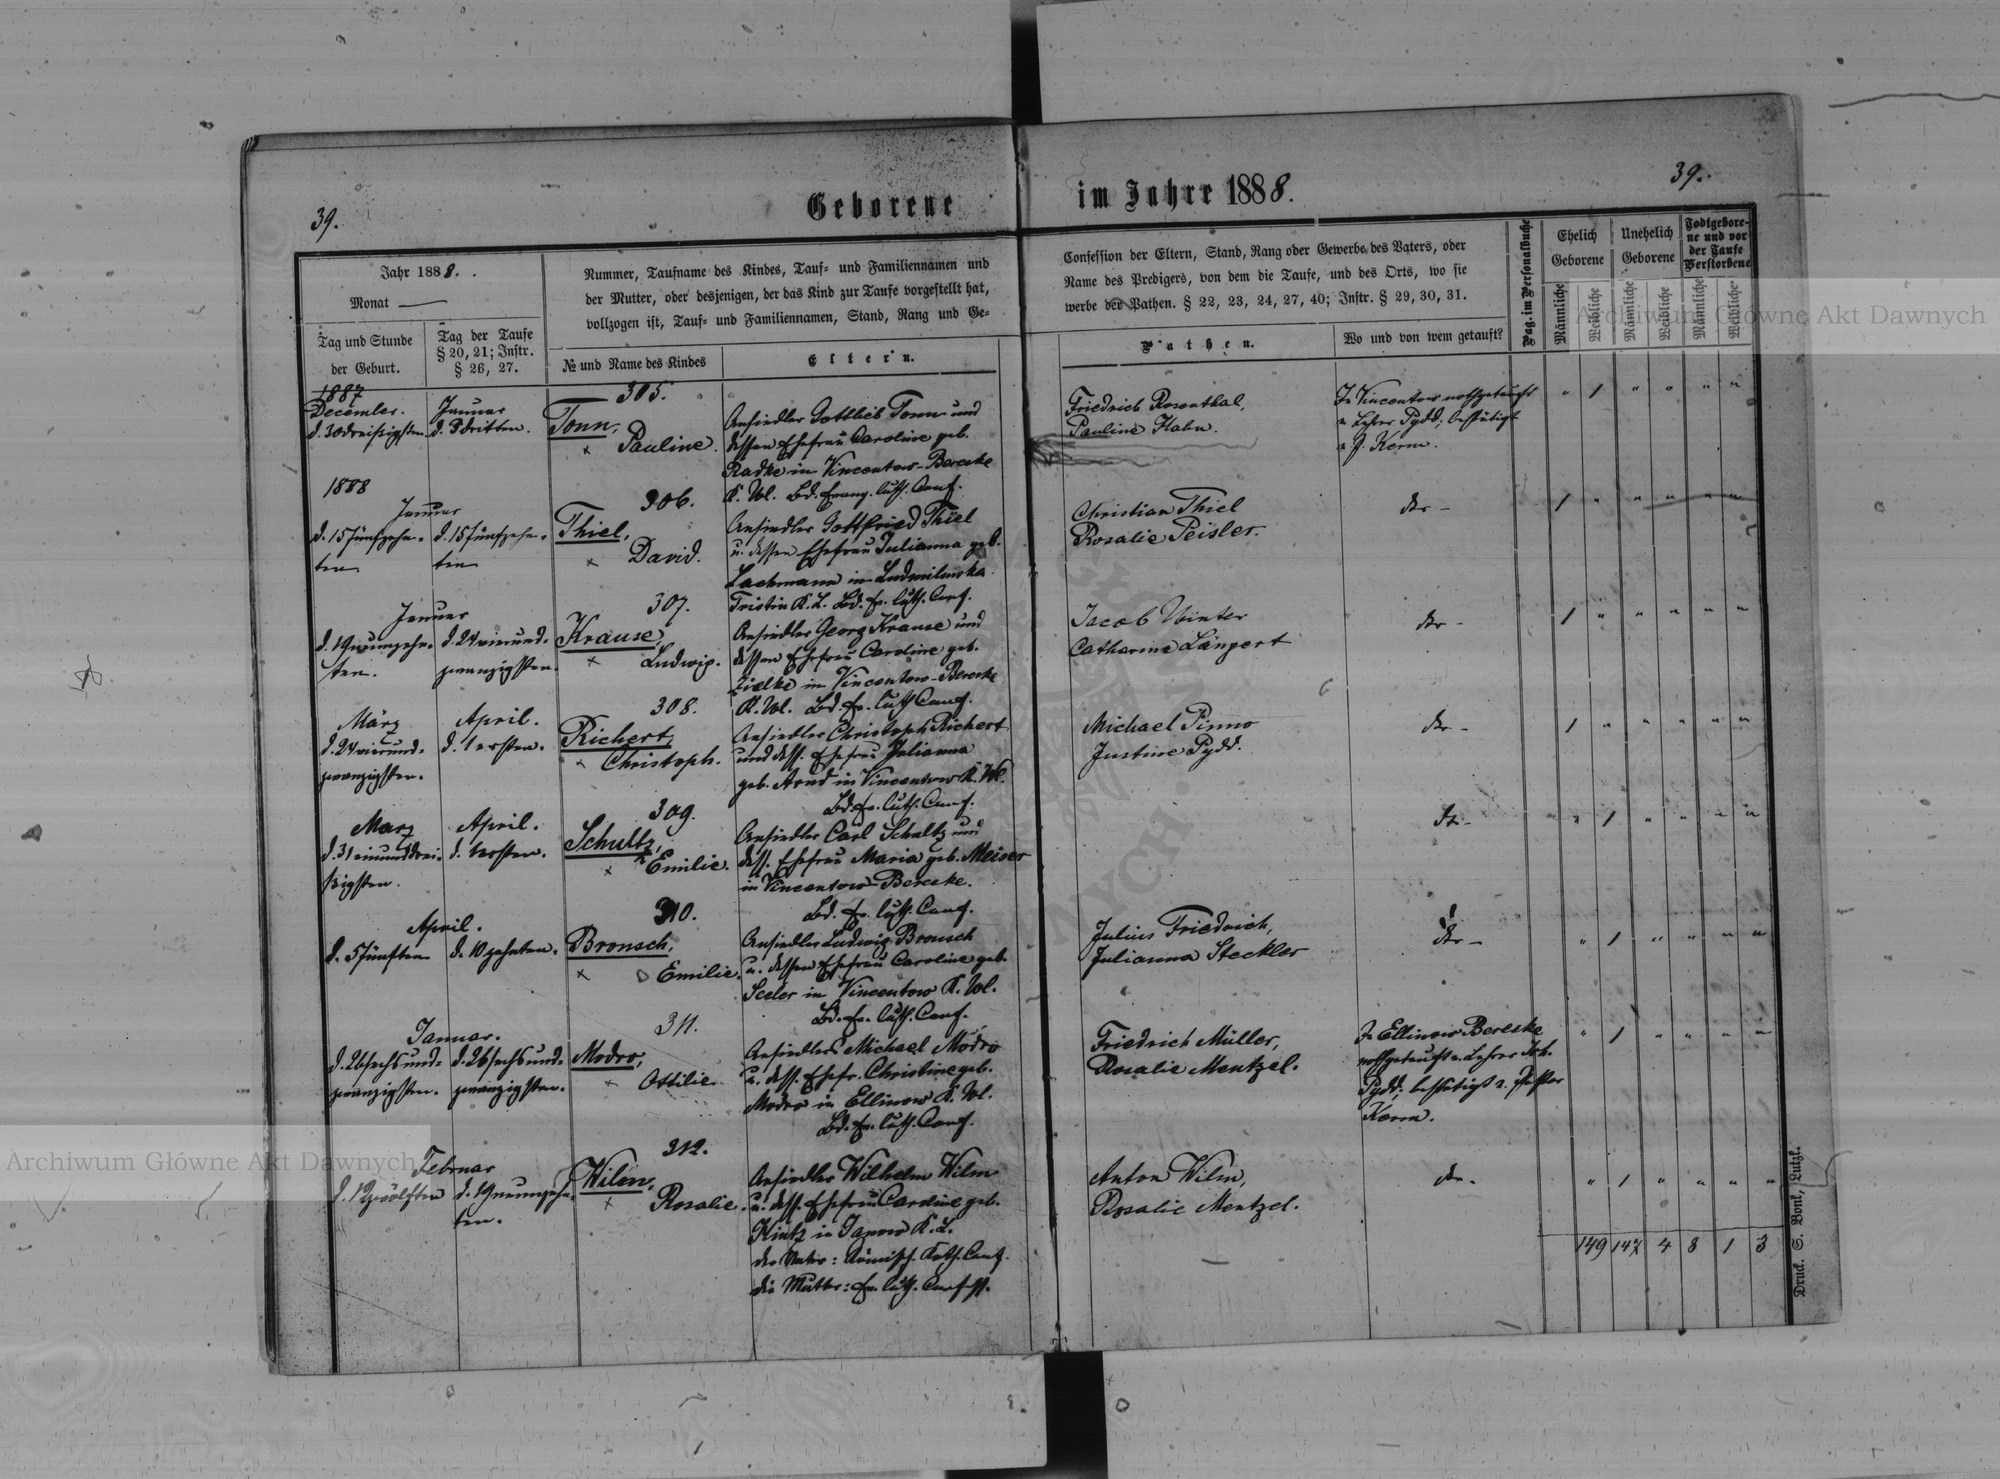 39.
Geborene
im Jahre 1888.
39.
Jahr 1888.
Monat
Tag und Stunde
der Geburt.
Tag der Taufe
§ 20, 21; Instr.
§ 26, 27.
Nummer, Taufname des Kindes, Tauf- und Familiennamen und
der Mutter, oder desjenigen, der das Kind zur Taufe vorgestellt hat,
vollzogen ist, Tauf- und Familiennamen, Stand, Rang und Ge-
№ und Name des Kindes
Eltern.
Confession der Eltern, Stand, Rang oder Gewerbe des Vaters, oder
Name des Predigers, von dem die Taufe, und des Orts, wo sie
werbe der Pathen. § 22, 23, 24, 27, 40; Instr. § 29, 30, 31.
Pathen.
Wo und von wem getauft?
Pag. im Personalbuche
Ehelich
Geborene
Unehelich
Geborene
Todtgebore-
ne und vor
der Taufe
Verstorbene
Männliche
Weibliche
Männliche
Weibliche
Männliche
Weibliche
1887
December.
d. 30 dreißigsten
Januar
d. 3 dritten.
305.
Tonn,
Pauline.
Ansiedler Gottlieb Tonn und
dessen Ehefrau Caroline geb.
Radke in Vincentow-Bereske
K. Wl. Bd. Evang. luth. Conf.
Friedrich Rosenthal,
Pauline Hahn.
In Vincentow nothgetauft
v. Lehrer Pydd, bestätigt
v. P. Kerm.
1888
Januar
d. 15 fünfzehn-
ten
d. 15 fünfzehn-
ten
306.
Thiel,
David.
Ansiedler Gottfried Thiel
u. dessen Ehefrau Julianna geb.
Lachmann in Ludmilowka
Tristin K. L. Bd. Ev. luth. Conf.
Christian Thiel
Rosalie Peisler.
Januar
d. 19 neunzehn-
ten.
d. 24 vierund-
zwanzigsten.
307.
Krause,
Ludwig.
Ansiedler Georg Krause und
dessen Ehefrau Caroline geb.
Zielke in Vincentow-Bereske
K. Wl. Bd. Ev. luth. Conf.
Jacob Winter
Catharina Längert
März
d. 24 vierund-
zwanzigsten.
April.
d. 1 ersten.
308.
Richert,
Christoph.
Ansiedler Christoph Richert
und dess. Ehefrau Julianna
geb. Arnd in Vincentow K. Wl.
Bd. Ev. luth. Conf.
Michael Pinno
Justine Pydd.
März
d. 31 einunddrei-
ßigsten.
April.
d. 1 ersten.
309.
Schultz,
Emilie.
Ansiedler Carl Schultz und
dess. Ehefrau Maria geb. Meiser
in Vincentow-Bereske.
Bd. Ev. luth. Conf.
April.
d. 5 fünften
d. 10 zehnten.
310.
Bronsch,
Emilie.
Ansiedler Ludwig Bronsch
u. dessen Ehefrau Caroline geb.
Seeler in Vincentow K. Wl.
Bd. Ev. luth. Conf.
Julius Friedrich,
Julianna Steckler
Januar.
d. 26 sechsund-
zwanzigsten.
d. 26 sechsund-
zwanzigsten.
311.
Modro,
Ottilie.
Ansiedlers Michael Modro
u. dess. Ehefr. Christine geb.
Modro in Ellinow K. Wl.
Bd. Ev. luth. Conf.
Friedrich Müller,
Rosalie Mentzel.
In Ellinow Bereske
nothgetauft v. Lehrer Joh.
Pydd; bestätigt v. Pastor
Kerm.
Februar
d. 12 zwölften
d. 19 neunzehn-
ten.
312.
Wilm,
Rosalie.
Ansiedler Wilhelm Wilm
u. dess. Ehefrau Caroline geb.
Kintz in Janow K. L.
der Vater: Römisch. Kath. Conf.
die Mutter: Ev. luth. Confess.
Anton Wilm,
Rosalie Mentzel.
149 147 4 8 1 3
Druck. S. Bonk, Lutzk.
Archiwum Główne Akt Dawnych
Archiwum Główne Akt Dawnych